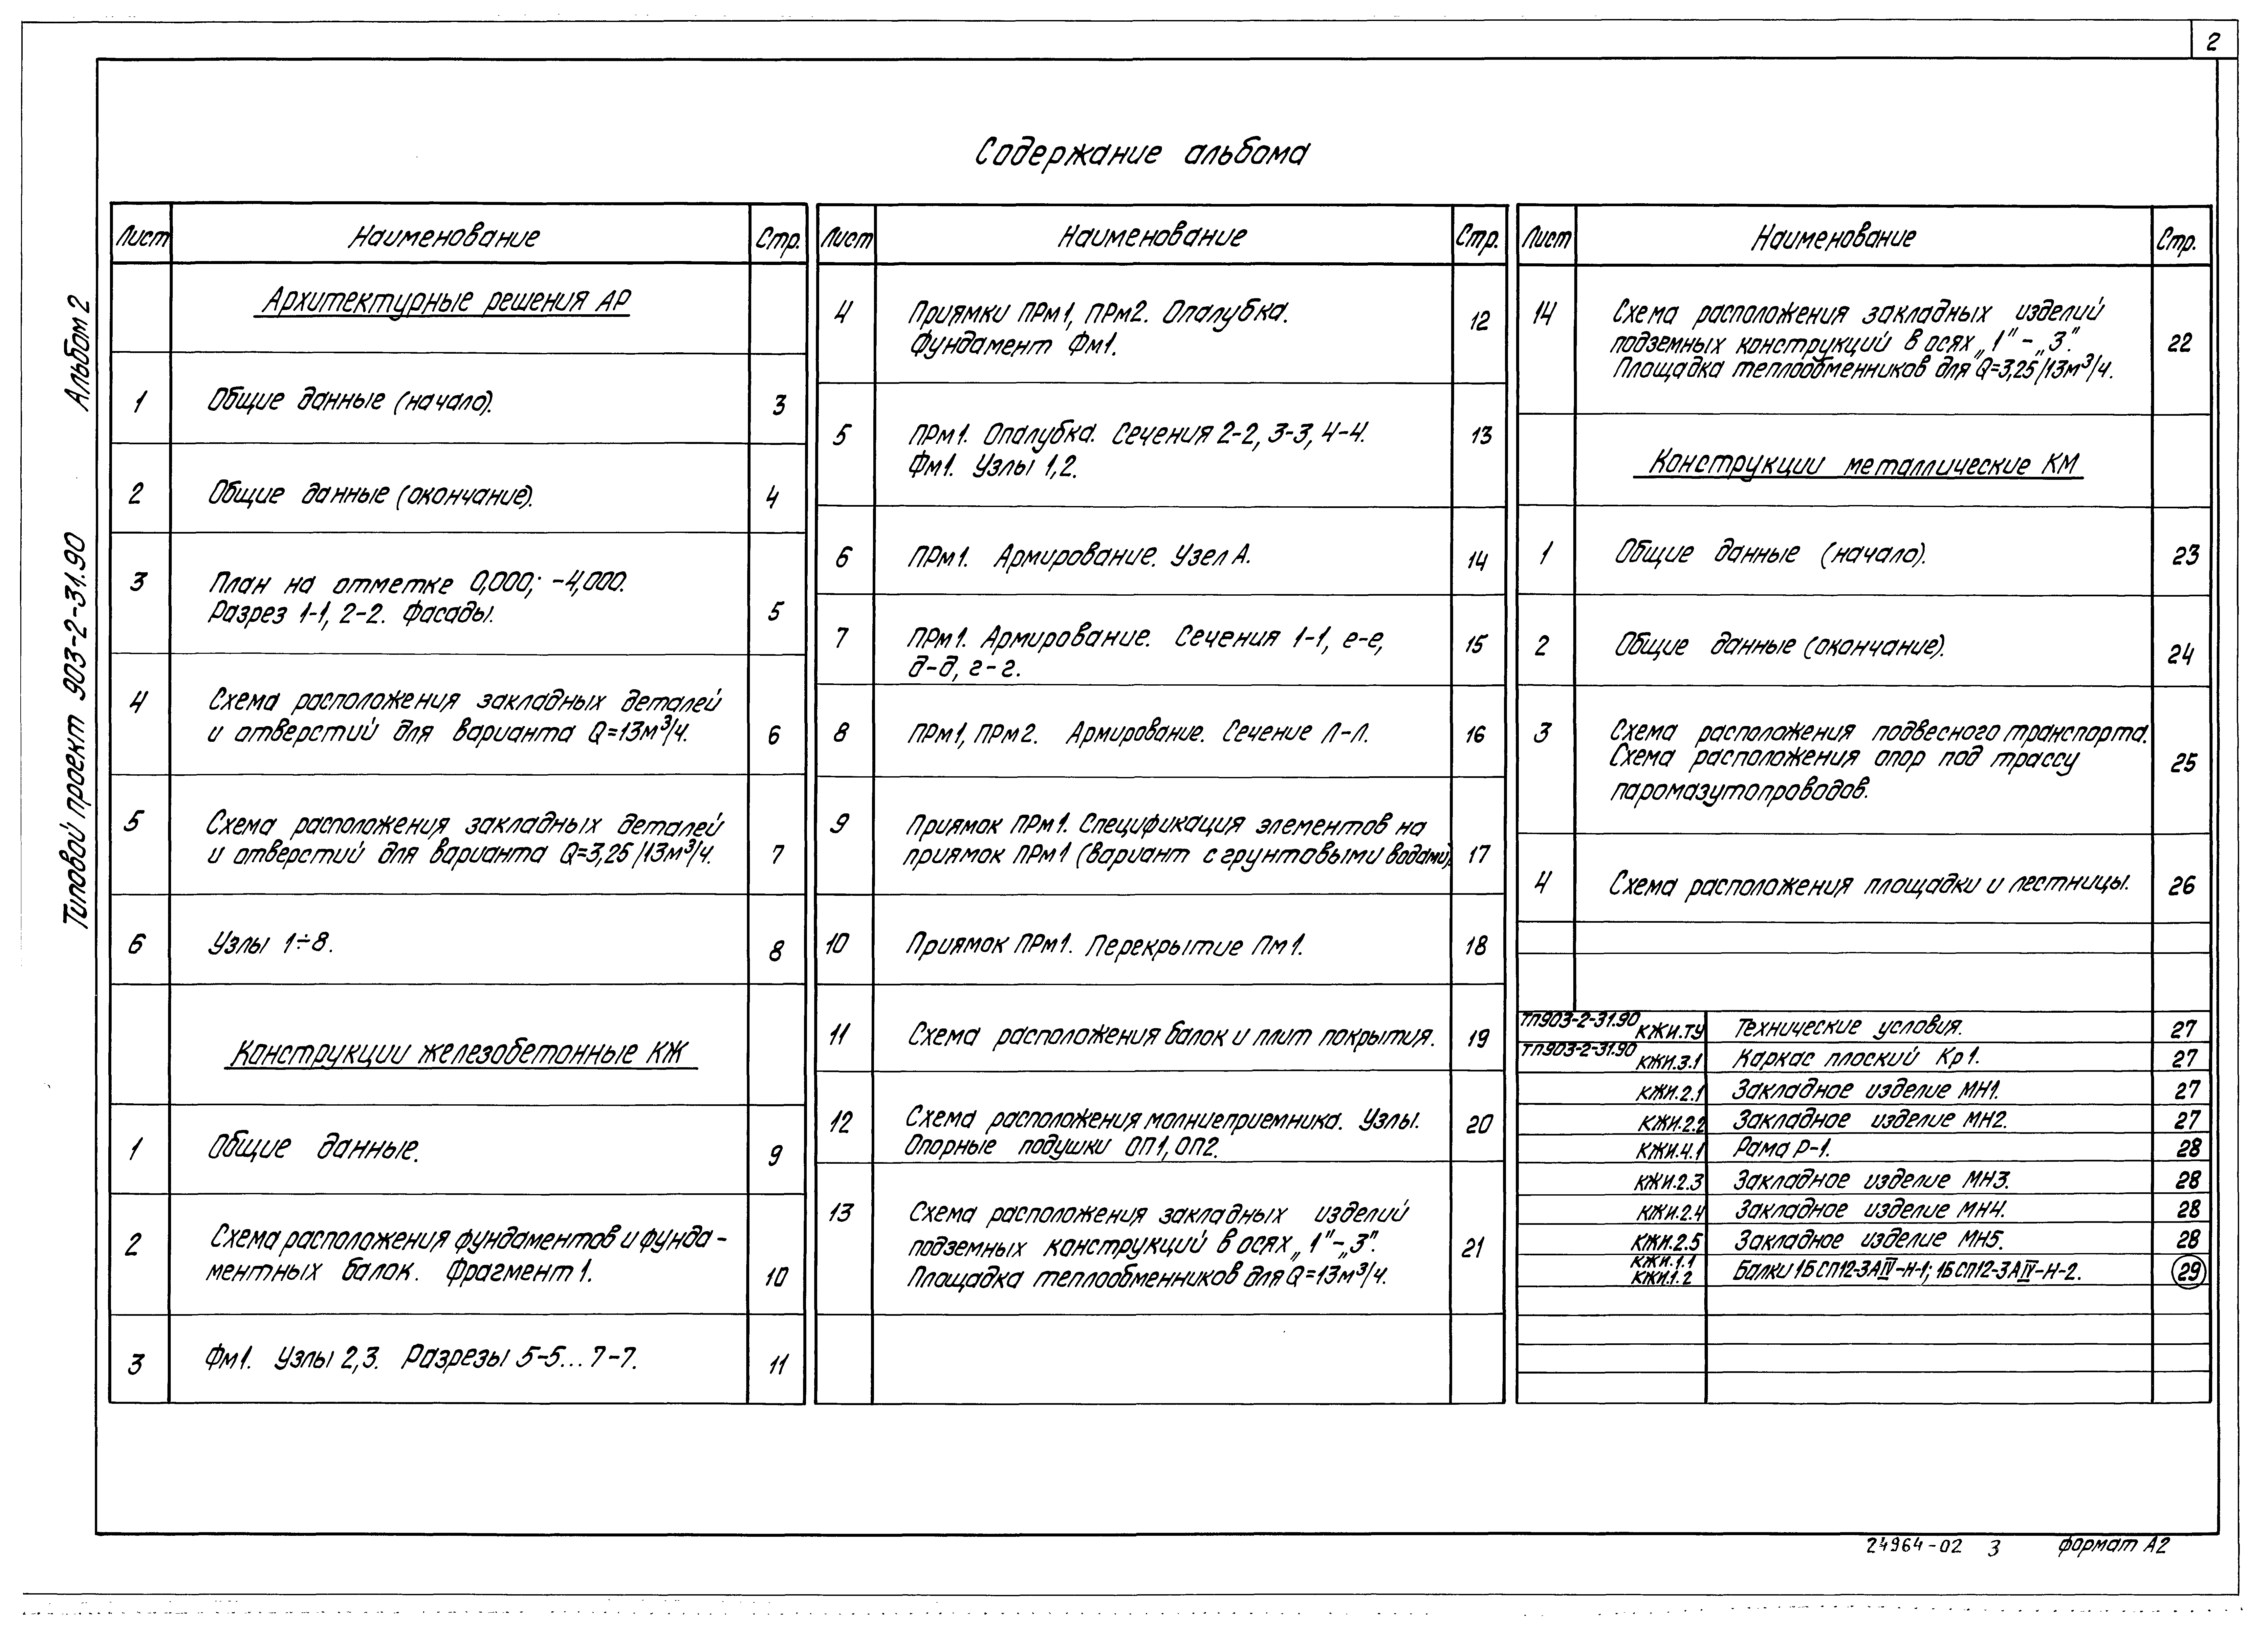 2
Содержание альбома
Типовой проект 903-2-31.90 Альбом 2
Лист Наименование Стр.
Архитектурные решения АР
1 Общие данные (начало). 3
2 Общие данные (окончание). 4
3 План на отметке 0,000; -4,000.
Разрез 1-1, 2-2. Фасады. 5
4 Схема расположения закладных деталей
и отверстий для варианта Q=13м³/ч. 6
5 Схема расположения закладных деталей
и отверстий для варианта Q=3,25/13м³/ч. 7
6 Узлы 1÷8. 8
Конструкции железобетонные КЖ
1 Общие данные. 9
2 Схема расположения фундаментов и фунда-
ментных балок. Фрагмент 1. 10
3 Фм1. Узлы 2,3. Разрезы 5-5...7-7. 11
Лист Наименование Стр.
4 Приямки ПРм1, ПРм2. Опалубка.
Фундамент Фм1. 12
5 ПРм1. Опалубка. Сечения 2-2, 3-3, 4-4. 13
Фм1. Узлы 1,2.
6 ПРм1. Армирование. Узел А. 14
7 ПРм1. Армирование. Сечения 1-1, е-е, 15
д-д, г-г.
8 ПРм1, ПРм2. Армирование. Сечение Л-Л. 16
9 Приямок ПРм1. Спецификация элементов на
приямок ПРм1 (вариант с грунтовыми водами). 17
10 Приямок ПРм1. Перекрытие Пм1. 18
11 Схема расположения балок и плит покрытия. 19
12 Схема расположения молниеприемника. Узлы. 20
Опорные подушки ОП1, ОП2.
13 Схема расположения закладных изделий
подземных конструкций в осях „1"-„3". 21
Площадка теплообменников для Q=13м³/ч.
Лист Наименование Стр.
14 Схема расположения закладных изделий
подземных конструкций в осях „1"-„3". 22
Площадка теплообменников для Q=3,25/13м³/ч.
Конструкции металлические КМ
1 Общие данные (начало). 23
2 Общие данные (окончание). 24
3 Схема расположения подвесного транспорта.
Схема расположения опор под трассу 25
паромазутопроводов.
4 Схема расположения площадки и лестницы. 26
ТП903-2-31.90 КЖИ.ТУ Технические условия. 27
ТП903-2-31.90 КЖИ.3.1 Каркас плоский Кр1. 27
КЖИ.2.1 Закладное изделие МН1. 27
КЖИ.2.2 Закладное изделие МН2. 27
КЖИ.4.1 Рама Р-1. 28
КЖИ.2.3 Закладное изделие МН3. 28
КЖИ.2.4 Закладное изделие МН4. 28
КЖИ.2.5 Закладное изделие МН5. 28
КЖИ.1.1
КЖИ.1.2 Балки 1БСП12-3АIV-Н-1; 1БСП12-3АIV-Н-2. 29
24964-02 3 формат А2